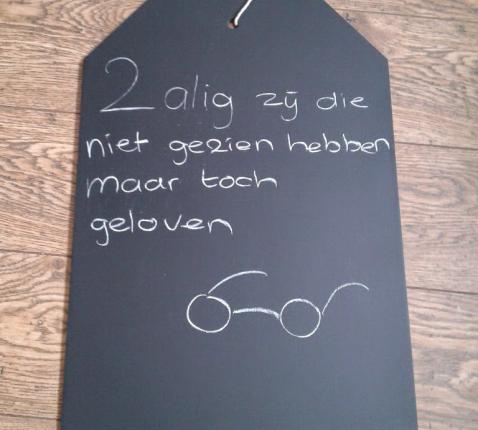 Zalig zij die
niet gezien hebben
maar toch
geloven